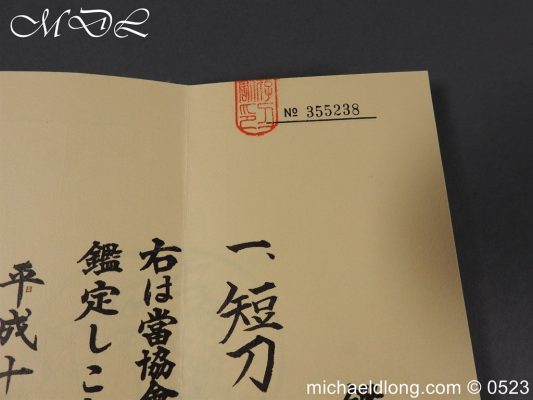 MDL
№ 355238
一、短刀
右は當協會
鑑定しこ
平成十
michaeldlong.com © 0523